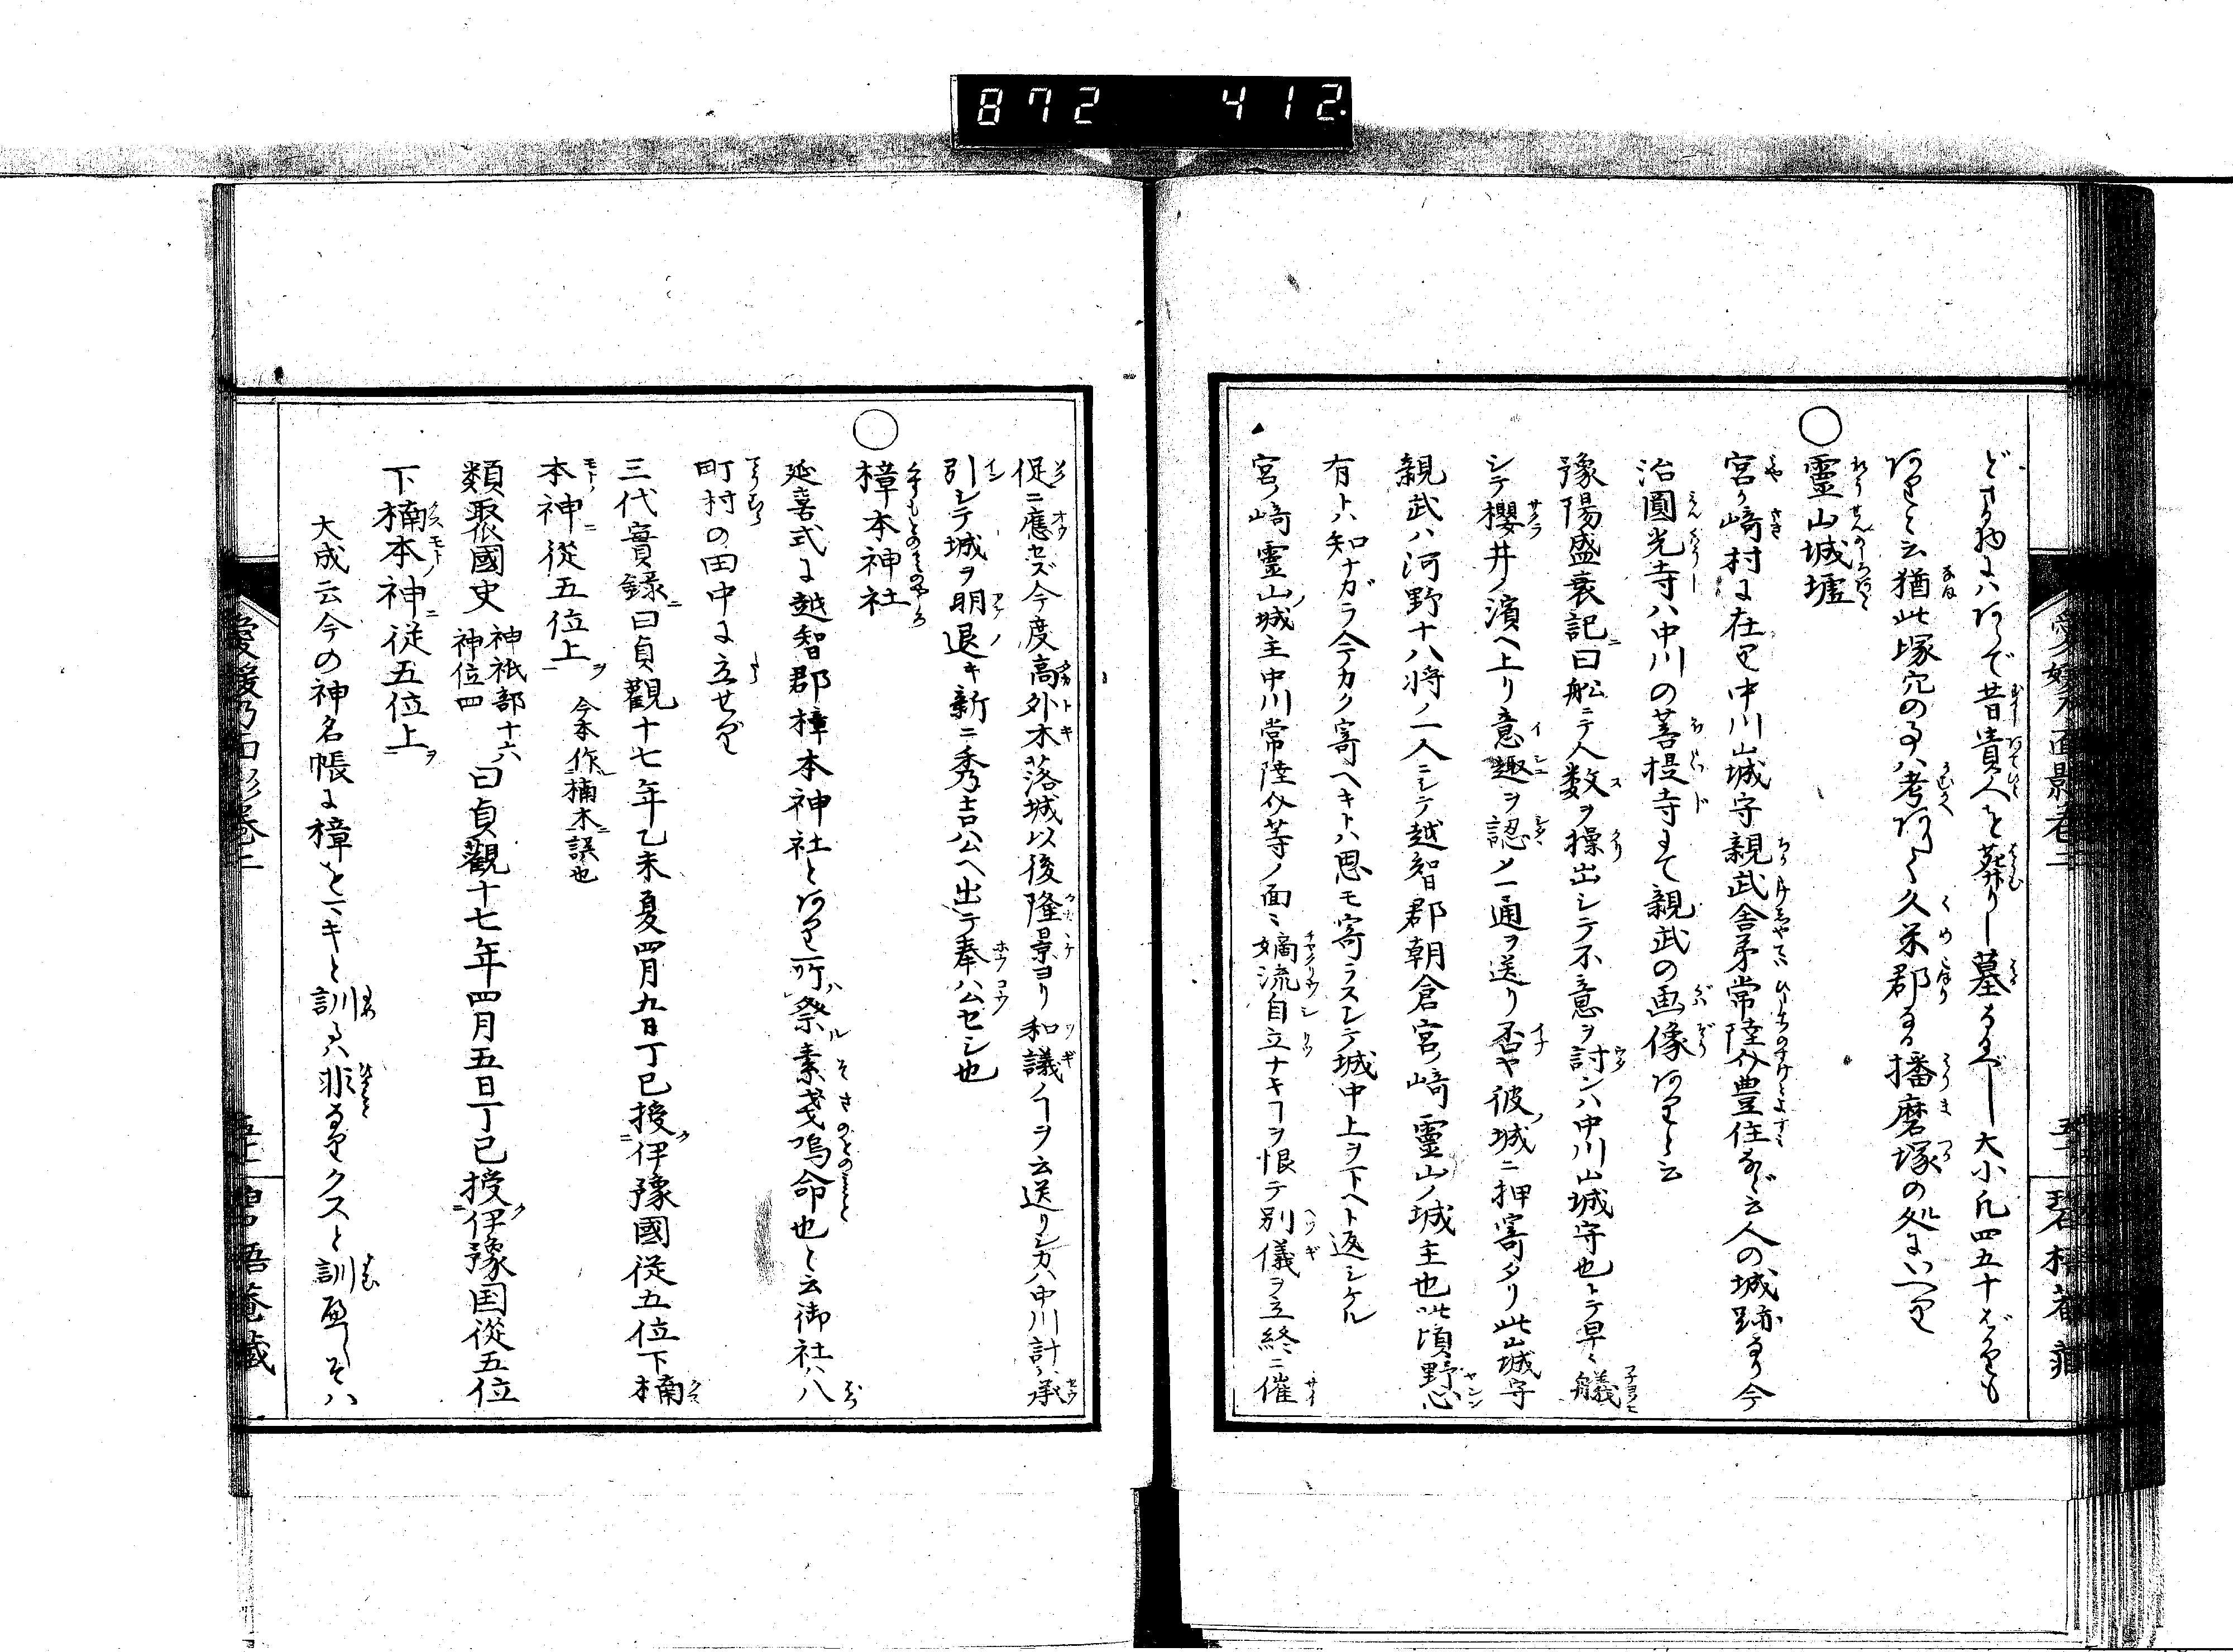 872 412
どする物にハあらで昔貴人を葬りし墓なるべし大小凡四五十ばかりも
ありと云猶此塚穴の事ハ考あり久米郡なる播磨塚の処にいへり
○靈山城墟
宮ヶ﨑村に在り中川山城守親武舍弟常陸介豊住など云人の城跡なり今
治圓光寺ハ中川の菩提寺にて親武の画像ありと云
豫陽盛衰記ニ曰舩ニテ人数ヲ操出シテ不意ヲ討ンハ中川山城守也トテ早々艤
シテ櫻井ノ濱ヘ上リ意趣ヲ認メ一通ヲ送リ否ヤ彼ノ城ニ押寄タリ此山城守
親武ハ河野十八将ノ一人ニシテ越智郡朝倉宮ノ﨑靈山ノ城主也此頃野心
有トハ知ナガラ今カク寄ヘキトハ思モ寄ラスシテ城中上ヲ下ヘト返シケル
宮ノ﨑靈山ノ城主中川常陸介等ノ面々嫡流自立ナキヿヲ恨テ別儀ヲ立終ニ催
促ニ應セズ今度高外木落城以後隆景ヨリ和議ノヿヲ云送リシカハ中川計ハ承
引シテ城ヲ明退キ新ニ秀吉公ヘ出テ奉公セシ也
○樟本神社
延喜式に越智郡樟本神社とあり所祭ハ素戔嗚命也と云御社ハ八
町村の田中に立せり
三代實録ニ曰貞觀十七年乙未夏四月九日丁巳授伊豫國從五位下楠
本神ニ從五位上ヲ 今本作楠木ニ誤也
類聚國史 神祇部十六 神位四 曰貞觀十七年四月五日丁巳授伊豫国從五位
下楠本神ニ従五位上ヲ
大成云今の神名帳に樟をマキと訓るハ非なりクスと訓べしそハ
愛媛乃面影巻二